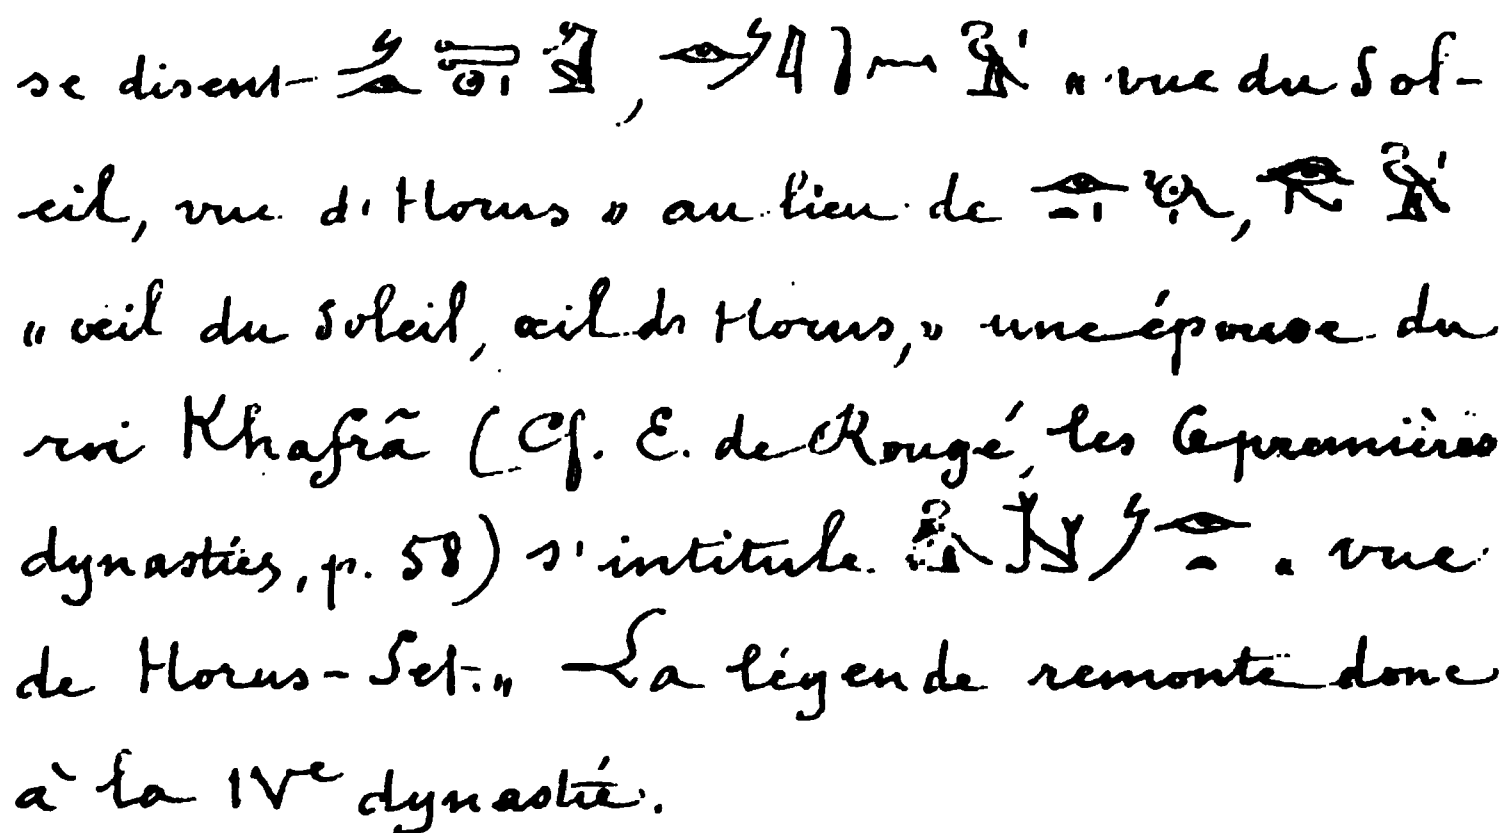 se disent , « vue du Sol-
eil, vue d'Horus » au lieu de ,
« œil du Soleil, œil de Horus, » une épouse du
roi Khafrâ (Cf. E. de Rougé, les 6 premières
dynasties, p. 58) s'intitule « vue
de Horus-Set. » — La légende remonte donc
à la IVe dynastie.